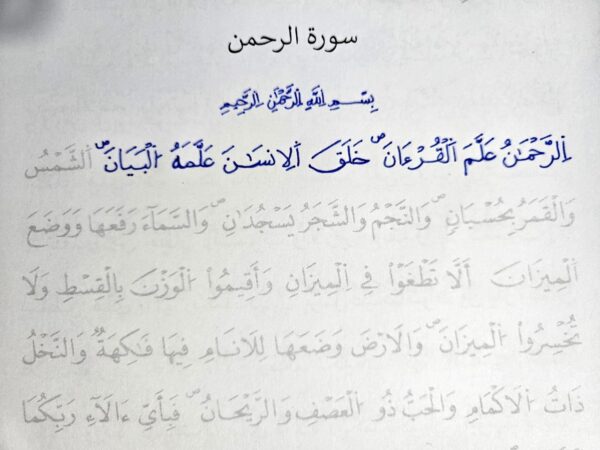 سورة الرحمن
بِسْمِ اللَّهِ الرَّحْمَٰنِ الرَّحِيمِ
اَ۬لرَّحْمَٰنُ عَلَّمَ اَ۬لْقُرْءَانَۖ خَلَقَ اَ۬لِانسَٰنَ عَلَّمَهُ اُ۬لْبَيَانَۖ اَ۬لشَّمْسُ
وَالْقَمَرُ بِحُسْبَانٖۖ وَالنَّجْمُ وَالشَّجَرُ يَسْجُدَٰنِۖ وَالسَّمَآءَ رَفَعَهَا وَوَضَعَ
اَ۬لْمِيزَانَ أَلَّا تَطْغَوْاْ فِے اِ۬لْمِيزَانِ وَأَقِيمُواْ اُ۬لْوَزْنَ بِالْقِسْطِ وَلَا
تُخْسِرُواْ اُ۬لْمِيزَانَۖ وَالَارْضَ وَضَعَهَا لِلَانَامِ فِيهَا فَٰكِهَةٞ وَالنَّخْلُ
ذَاتُ اُ۬لَاكْمَامِ وَالْحَبُّ ذُو اُ۬لْعَصْفِ وَالرَّيْحَانُۖ فَبِأَيِّ ءَالَآءِ رَبِّكُمَا